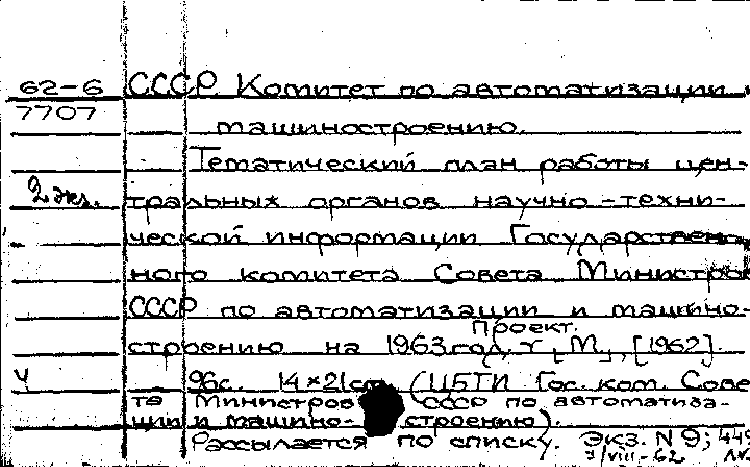 62-6 СССР. Комитет по автоматизации и
7707
машиностроению.
Тематический план работы цен-
2 экз. тральных органов научно-техни-
ческой информации Государствен-
ного комитета Совета Министров
СССР по автоматизации и машино-
Проект.
строению на 1963 год. М., [1962].
96с. 14×21см. (ЦБТИ Гос. ком. Сове
та Министров СССР по автоматиза-
ции и машино- строению).
Рассылается по списку. Экз. N 9; 449
7/VIII-62